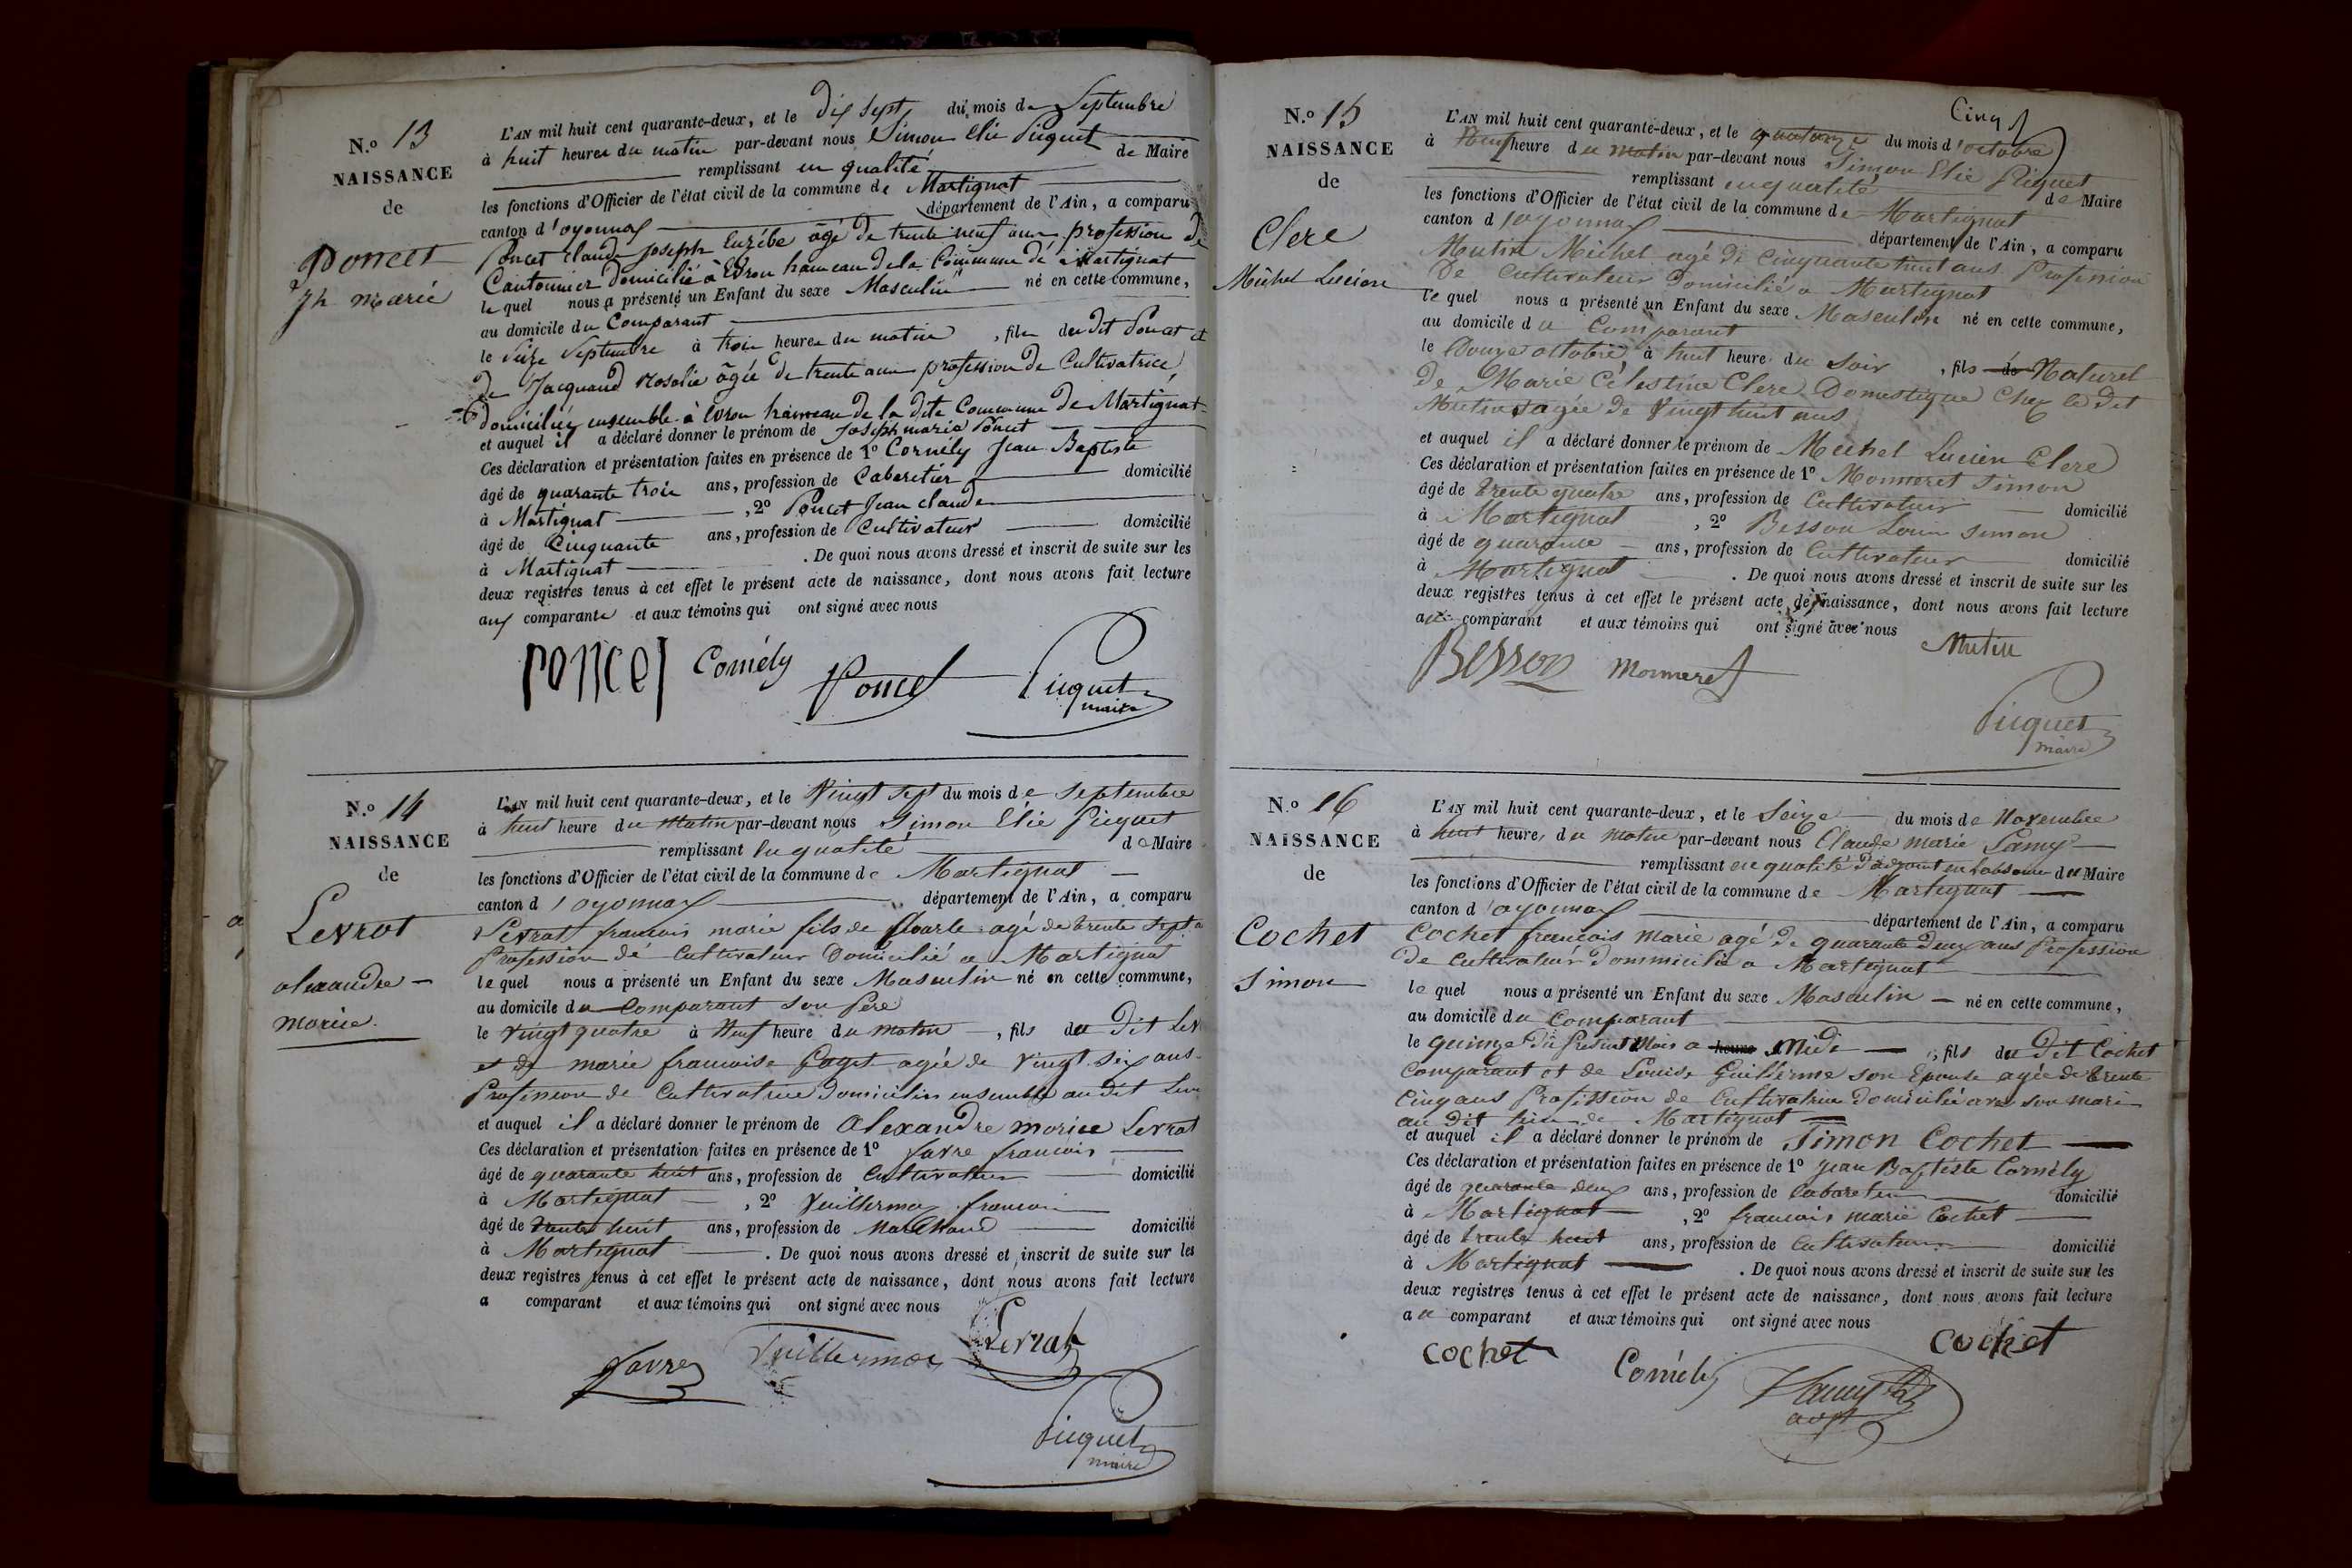 N.º 13
NAISSANCE
de
Poncet
Jh marie
L'AN mil huit cent quarante-deux, et le Dix sept du mois de Septembre
à huit heures du matin par-devant nous Simon Elie Picquet
remplissant en qualité de Maire
les fonctions d'Officier de l'état civil de la commune de Martignat
canton d'oyonnax département de l'Ain, a comparu
Poncet Claude Joseph Euzébe âgé de trente neuf ans profession de
Cantonnier domicilié à Evron hameau de la Commune de Martignat
le quel nous a présenté un Enfant du sexe Masculin né en cette commune,
au domicile du Comparant
le Seize Septembre à trois heures du matin, fils du dit Poncet et
de Jacquand Rosalie âgée de trente ans profession de Cultivatrice
domiciliés ensemble à Evron hameau de la dite Commune de Martignat
et auquel il a déclaré donner le prénom de Joseph marie Poncet
Ces déclaration et présentation faites en présence de 1º Cornély Jean Baptiste
âgé de quarante trois ans, profession de Cabaretier domicilié
à Martignat, 2º Poncet Jean Claude
âgé de Cinquante ans, profession de Cultivateur domicilié
à Martignat. De quoi nous avons dressé et inscrit de suite sur les
deux registres tenus à cet effet le présent acte de naissance, dont nous avons fait lecture
aux comparants et aux témoins qui ont signé avec nous
Poncet Cornély Poncet Picquet
maire
N.º 14
NAISSANCE
de
Levrat
alexandre
marie
L'AN mil huit cent quarante-deux, et le Vingt sept du mois de Septembre
à huit heure du Matin par-devant nous Simon Elie Picquet
remplissant en qualité de Maire
les fonctions d'Officier de l'état civil de la commune de Martignat
canton d'oyonnax département de l'Ain, a comparu
Levrat francois marie fils de Charle agé de trente sept a
Profession de Cultivateur Domicilié a Martignat
le quel nous a présenté un Enfant du sexe Masculin né en cette commune,
au domicile du Comparant son Pere
le vingt quatre à Neuf heure du matin, fils du Dit Lev
et de marie francoise Paget agée de vingt six ans
Profession de Cultivatrice Domiciliés ensemble au dit
et auquel il a déclaré donner le prénom de Alexandre marie Levrat
Ces déclaration et présentation faites en présence de 1º favre francois
âgé de quarante huit ans, profession de Cultivateur domicilié
à Martignat, 2º Vuillermoz francois
âgé de trente huit ans, profession de Marchand domicilié
à Martignat. De quoi nous avons dressé et inscrit de suite sur les
deux registres tenus à cet effet le présent acte de naissance, dont nous avons fait lecture
a comparant et aux témoins qui ont signé avec nous
favre Vuillermoz Levrat
Picquet
maire
N.º 15
NAISSANCE
de
Clerc
Michel Lucien
Cinq
L'AN mil huit cent quarante-deux, et le quatorze du mois d'octobre
à Neuf heure du matin par-devant nous Simon Elie Picquet
remplissant en qualité de Maire
les fonctions d'Officier de l'état civil de la commune de Martignat
canton d'oyonnax département de l'Ain, a comparu
Mutin Michel agé de Cinquante huit ans Profession
De Cultivateur Domicilié a Martignat
le quel nous a présenté un Enfant du sexe Masculin né en cette commune,
au domicile du Comparant
le Douze octobre à huit heure du soir, fils de Naturel
de Marie Célestine Clerc Domestique Chez le dit
Mutin agée de Vingt huit ans
et auquel il a déclaré donner le prénom de Michel Lucien Clerc
Ces déclaration et présentation faites en présence de 1º Monneret Simon
âgé de trente quatre ans, profession de Cultivateur domicilié
à Martignat, 2º Besson Louis Simon
âgé de quarante ans, profession de Cultivateur domicilié
à Martignat. De quoi nous avons dressé et inscrit de suite sur les
deux registres tenus à cet effet le présent acte de naissance, dont nous avons fait lecture
au comparant et aux témoins qui ont signé avec nous
Besson Monneret Mutin
Picquet
maire
N.º 16
NAISSANCE
de
Cochet
Simon
L'AN mil huit cent quarante-deux, et le Seize du mois de Novembre
à huit heures du matin par-devant nous Claude marie Lamy
remplissant en qualité d'adjoint en l'absence du Maire
les fonctions d'Officier de l'état civil de la commune de Martignat
canton d'oyonnax département de l'Ain, a comparu
Cochet francois Marie agé de quarante deux ans Profession
de Cultivateur Dommicilié a Martignat
le quel nous a présenté un Enfant du sexe Masculin né en cette commune,
au domicile du Comparant
le quinze du present Mois a heure Midi, fils du Dit Cochet
Comparant et de Louise Guillerme son Epouse agée de trente
Cinq ans Profission de Cultivatrice domiciliée avec son mari
au dit lieu de Martignat
et auquel il a déclaré donner le prénom de Simon Cochet
Ces déclaration et présentation faites en présence de 1º Jean Baptiste Cornély
âgé de quarante deux ans, profession de Cabaretier domicilié
à Martignat, 2º francois marie Cochet
âgé de trente huit ans, profession de Cultivateur domicilié
à Martignat. De quoi nous avons dressé et inscrit de suite sur les
deux registres tenus à cet effet le présent acte de naissance, dont nous avons fait lecture
au comparant et aux témoins qui ont signé avec nous
Cochet Cornély Lamy Cochet